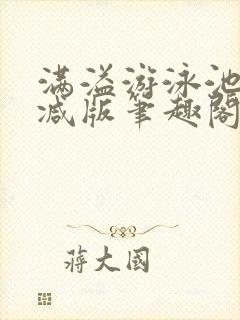 满溢游泳池
减版笔趣阁
蒋大国